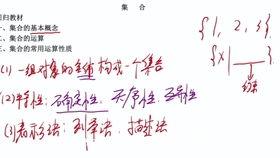 集 合
归教材
一、集合的基本概念
二、集合的运算
三、集合的常用运算性质
{1, 2, 3}
{x|
(1) 一组对象的全体构成一个集合
(2) 特性: 确定性, 无序性, 互异性
(3) 表示法: 列举法, 描述法